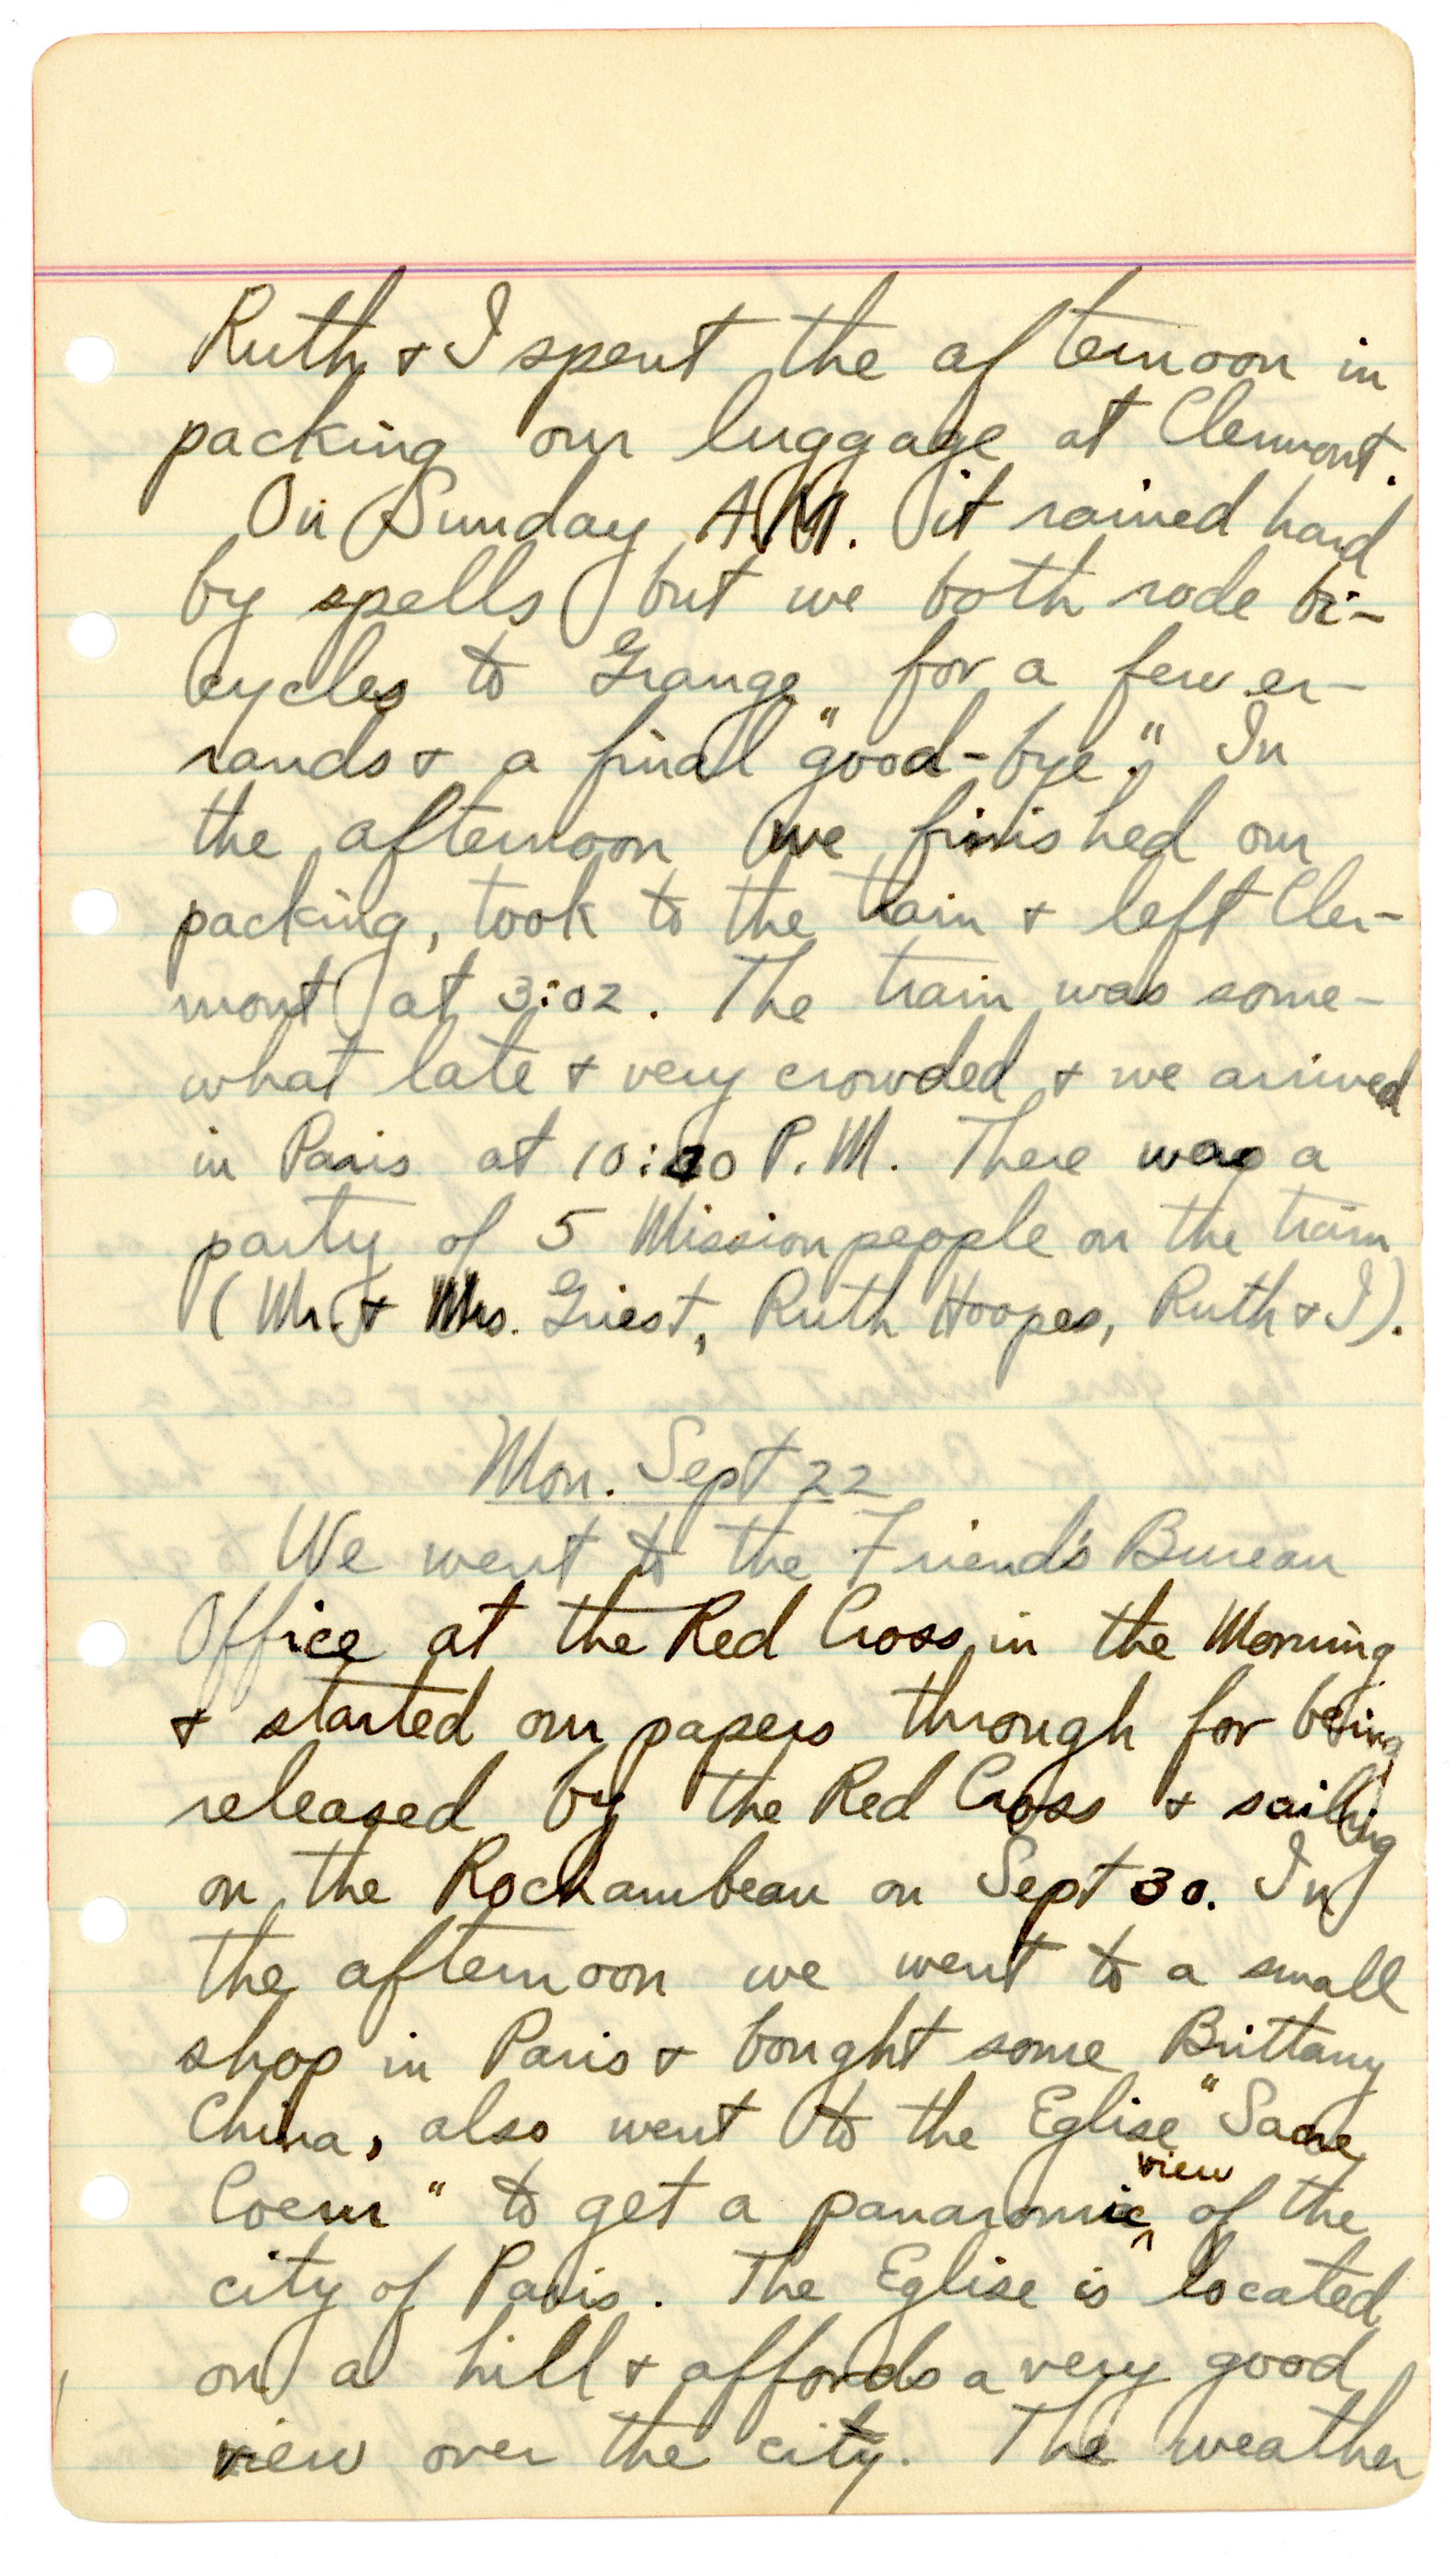 Ruth & I spent the afternoon in
packing our luggage at Clermont.
On Sunday A.M. it rained hard
by spells but we both rode bi-
cycles to Grange for a few er-
rands & a final "good-bye". In
the afternoon we finished our
packing, took to the train & left Cler-
mont at 3:02. The train was some-
what late & very crowded & we arrived
in Paris at P.M. There was a
party of 5 Mission people on the train
(Mr. & Mrs. Griest, Ruth Hoopes, Ruth & I).
Mon. Sept 22
We went to the Friend's Bureau
Office at the Red Cross in the Morning
& started our papers through for being
released by the Red Cross & sailing
on the Rochambeau on Sept 30. In
the afternoon we went to a small
shop in Paris & bought some Brittany
China, also went to the Eglise "Sacre
Coeur" to get a panaromic view of the
city of Paris. The Eglise is located
on a hill & affords a very good
view over the city. The weather